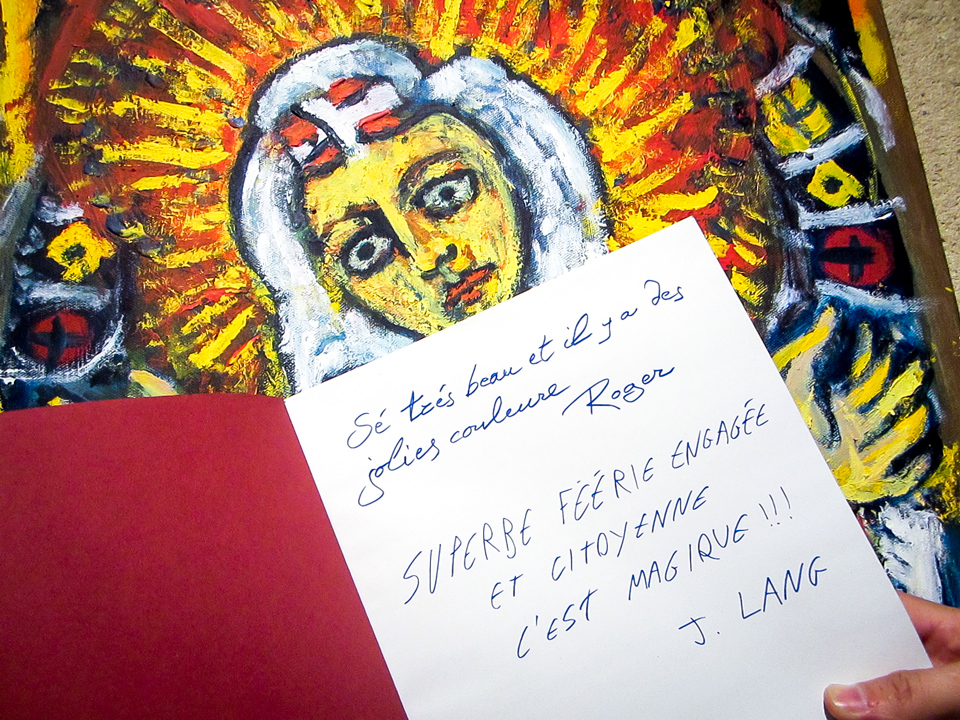 Sé trés beau et il y a des
jolies couleure Roger
SUPERBE FÉÉRIE ENGAGÉE
ET CITOYENNE
C'EST MAGIQUE !!!
J. LANG